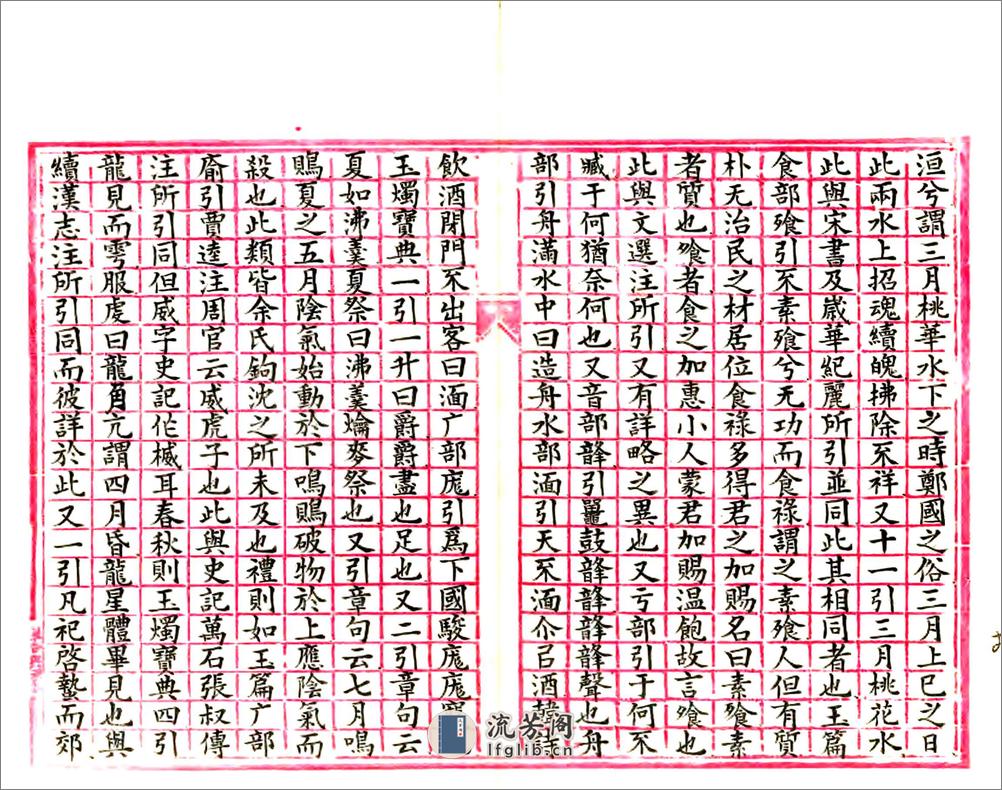 洹兮謂三月桃華水下之時鄭國之俗三月上巳之日
此兩水上招魂續魄拂除不祥又十一引三月桃花水
此與宋書及歲華紀麗所引並同此其相同者也玉篇
食部飱引不素飱兮无功而食祿謂之素飱人但有質
朴无治民之材居位食祿多得君之加賜名曰素飱素
者質也飱者食之加惠小人蒙君加賜温飽故言飱也
此與文選注所引又有詳略之異也又亏部引于何不
臧于何猶奈何也又音部韸引鼉鼓韸韸韸聲也舟
部引舟滿水中曰造舟水部湎引天不湎尒㠯酒韓詩
飲酒閉門不出客曰湎广部庬引爲下國駿庬庬
玉燭寶典一引一升曰爵爵盡也足也又二引章句云
夏如沸羹夏祭曰沸羹爚麥祭也又引章句云七月鳴
鵙夏之五月陰氣始動於下鳴鵙破物於上應陰氣而
殺也此類皆余氏鉤沈之所未及也禮則如玉篇广部
㢏引賈逵注周官云威虎子也此與史記萬石張叔傳
注所引同但威字史記作楲耳春秋則玉燭寶典四引
龍見而雩服虔曰龍角亢謂四月昏龍星體畢見也與
續漢志注所引同而彼詳於此又一引凡祀啓蟄而郊
流芳阁
lfglib.cn